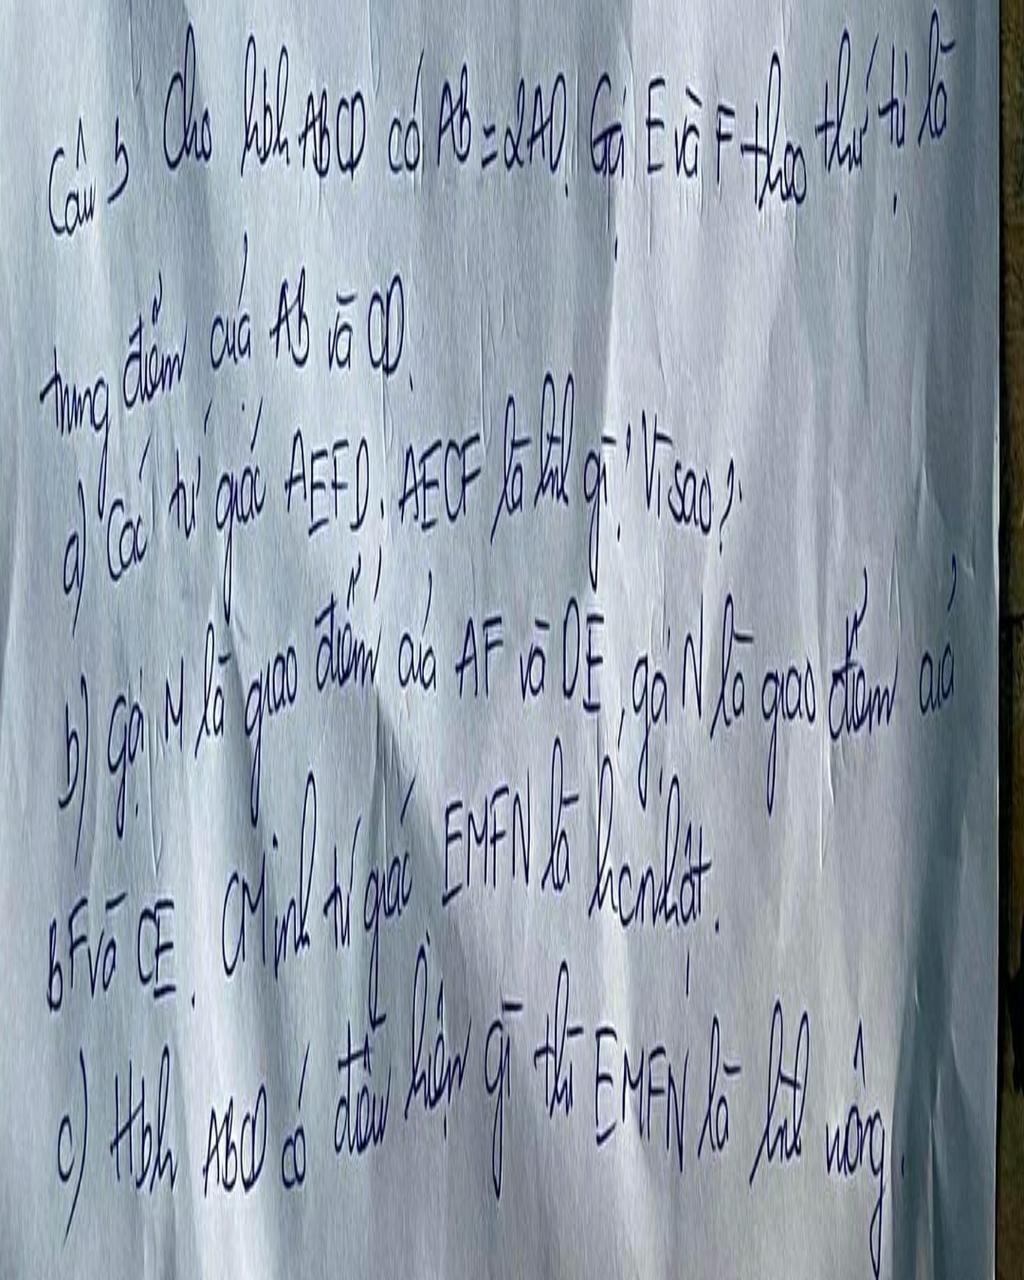 Câu 5 Cho hbh ABCD có AB = 2AD. Gọi E và F theo thứ tự là
trung điểm của AB và CD.
a) Các tứ giác AEFD, AECF là hh gì? Vì sao?
b) gọi M là giao điểm của AF và DE, gọi N là giao điểm của
BF và CE. CMinh tứ giác EMFN là hcnhật.
c) Hbh ABCD có điều kiện gì thì EMFN là hh vuông.